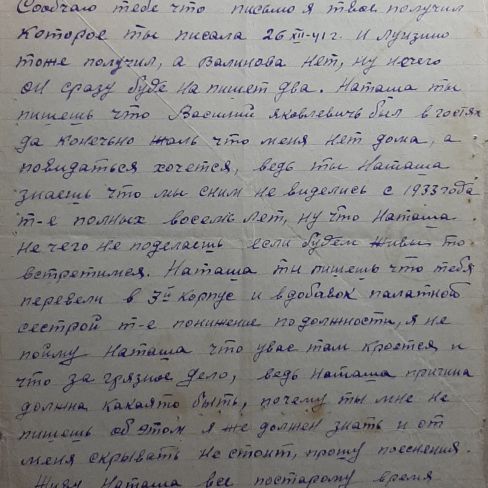 Сообчаю тебе что письмо я твое получил
которое ты писала 26 XII-41 г. и Луизино
тоже получил, а Валинова нет, ну нечего
он сразу буде напишет два. Наташа ты
пишешь что Василий Яковлевичь был в гостях
да конечьно жаль что меня нет дома, а
повидаться хочется, ведь ты Наташа
знаешь что мы сним не виделись с 1933 года
т-е полных восемь лет, ну что Наташа
не чего не поделаешь если будем живы то
встретимся. Наташа ты пишешь что тебя
перевели в 3й корпус и вдобавок палатной
сестрой т-е понижение по должности, я не
пойму Наташа что увас там кроется и
что за грязное дело, ведь Наташа причина
должна какаято быть, почему ты мне не
пишешь об этом я же должен знать и от
меня скрывать не стоит, прошу пояснения.
Живу Наташа все постарому время